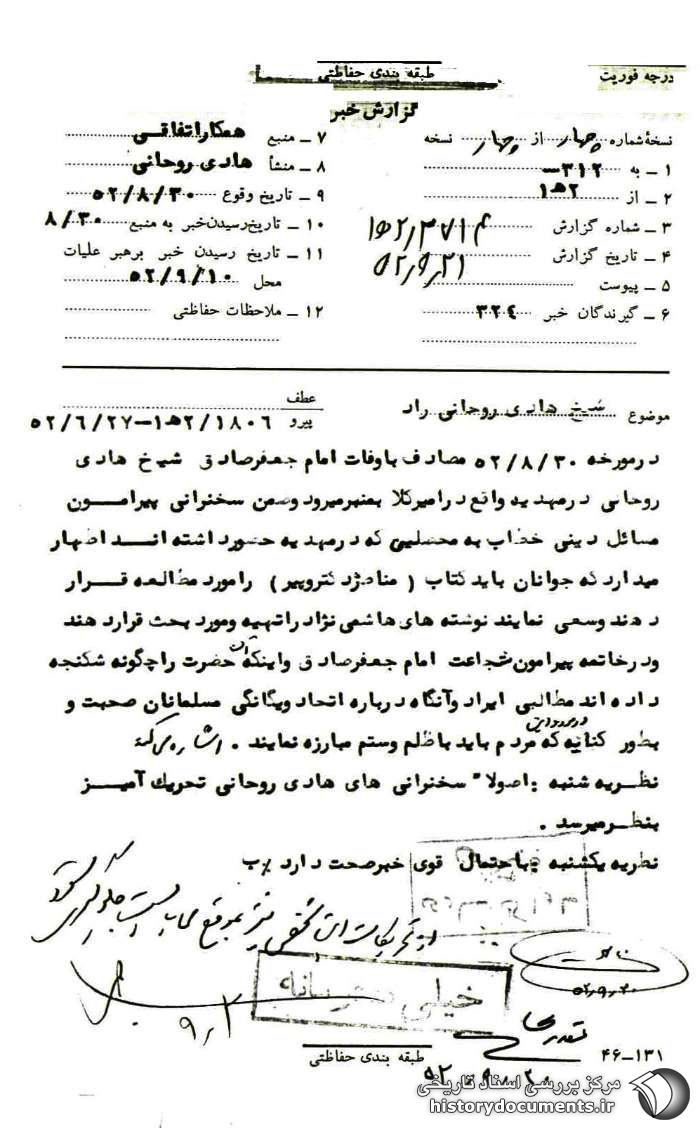 درجه فوریت
طبقه بندی حفاظتی
گزارش خبر
نسخهٔ شماره چهار از چهار نسخه
۱ ـ به ۳۱۲ـ
۲ ـ از ۲ه‍۱
۳ ـ شماره گزارش
۴ ـ تاریخ گزارش ۵۲٫۹٫۲۱
۵ ـ پیوست
۶ ـ گیرندگان خبر ۳۲۴
۷ ـ منبع همکار اتفاقی
۸ ـ منشأ هادی روحانی
۹ ـ تاریخ وقوع ۵۲/۸/۳۰
۱۰ ـ تاریخ رسیدن خبر به منبع ۸/۳۰
۱۱ ـ تاریخ رسیدن خبر برهبر عملیات
محل ۵۲/۹/۱۰
۱۲ ـ ملاحظات حفاظتی
موضوع شیخ هادی روحانی راد
عطف
پیرو ۲/۱۸۰۶ه‍۱ـ۵۲/۶/۲۷
درمورخه ۵۲/۸/۳۰ مصادف باوفات امام جعفرصادق شیخ هادی
روحانی درمهدیه واقع درامیرکلا بمنبرمیرود وضمن سخنرانی پیرامون
مسائل دینی خطاب به محصلینی که درمهدیه حضورداشته اند اظهار
میدارد که جوانان باید کتاب ( مناظره دکتروپیر ) رامورد مطالعه قرار
دهند وسعی نمایند نوشته های هاشمی نژاد راتهیه ومورد بحث قرارد هند
ودرخاتمه پیرامون شجاعت امام جعفرصادق واینکه آن حضرت راچگونه شکنجه
داده اند مطالبی ایراد وآنگاه درباره اتحاد ویگانگی مسلمانان صحبت و
بطور کنایه که مردم باید باظلم وستم مبارزه نمایند . اشاره میکند
نظریه شنبه : اصولا" سخنرانی های هادی روحانی تحریک آمیز
بنظرمیرسد .
نظریه یکشنبه : باحتمال قوی خبرصحت دارد %ب
از تحریکات این شخص نیز بموقع جلوگیری شود
۹٫۲
خیلی محرمانه
۵۲٫۹٫۲۰
طبقه بندی حفاظتی
۴۶ـ۱۳۱
مرکز بررسی اسناد تاریخی
historydocuments.ir